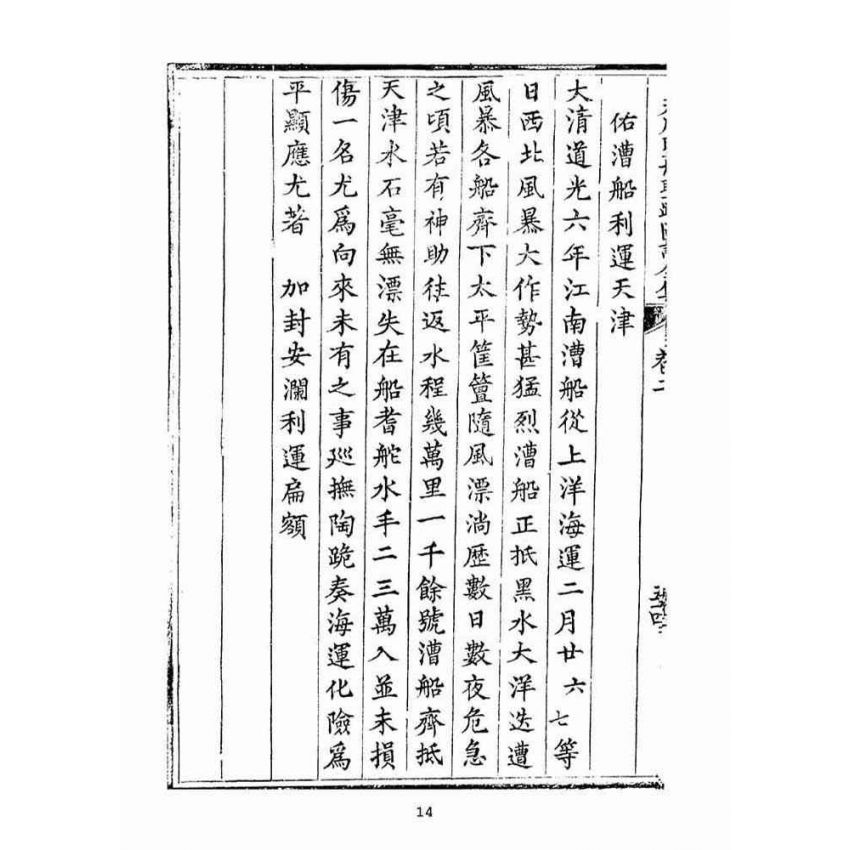 佑漕船利運天津
大清道光六年江南漕船從上洋海運二月廿六七等
日西北風暴大作勢甚猛烈漕船正抵黑水大洋迭遭
風暴各船齊下太平筐簹隨風漂淌歷數日數夜危急
之頃若有神助往返水程幾萬里一千餘號漕船齊抵
天津水石毫無漂失在船耆舵水手二三萬人並未損
傷一名尤爲向來未有之事巡撫陶跪奏海運化險爲
平顯應尤著　加封安瀾利運扁額
14